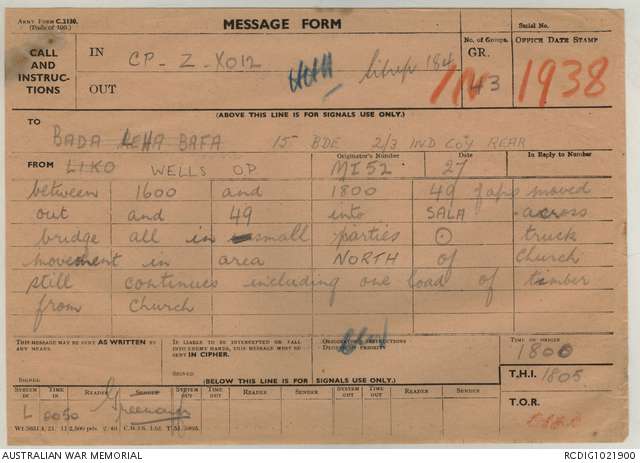 ARMY FORM C.2130.
(Pads of 100.)
MESSAGE FORM
Serial No.
CALL AND INSTRUCTIONS
IN CP - Z - XO12
Sitrep 184
OUT
No. of Groups.
GR.
43
IN
OFFICE DATE STAMP
1938
(ABOVE THIS LINE IS FOR SIGNALS USE ONLY.)
TO
BADA LEHA BAFA 15 BDE 2/3 IND COY REAR
FROM LIKO WELLS O.P.
Originator's Number
MI52
Date
27
In Reply to Number
between 1600 and 1800 49 Japs moved
out and 49 into SALA across
bridge all in small parties ⊙ truck
movement in area NORTH of Church
still continues including one load of timber
from Church
THIS MESSAGE MAY BE SENT AS WRITTEN BY ANY MEANS.
SIGNED
IF LIABLE TO BE INTERCEPTED OR FALL INTO ENEMY HANDS, THIS MESSAGE MUST BE SENT IN CIPHER.
SIGNED
ORIGINATOR'S INSTRUCTIONS
DEGREE OF PRIORITY
TIME OF ORIGIN
1800
T.H.I. 1805
T.O.R.
(BELOW THIS LINE IS FOR SIGNALS USE ONLY.)
SYSTEM IN TIME IN READER SENDER SYSTEM OUT TIME OUT READER SENDER SYSTEM OUT TIME OUT READER SENDER
L
AUSTRALIAN WAR MEMORIAL
RCDIG1021900